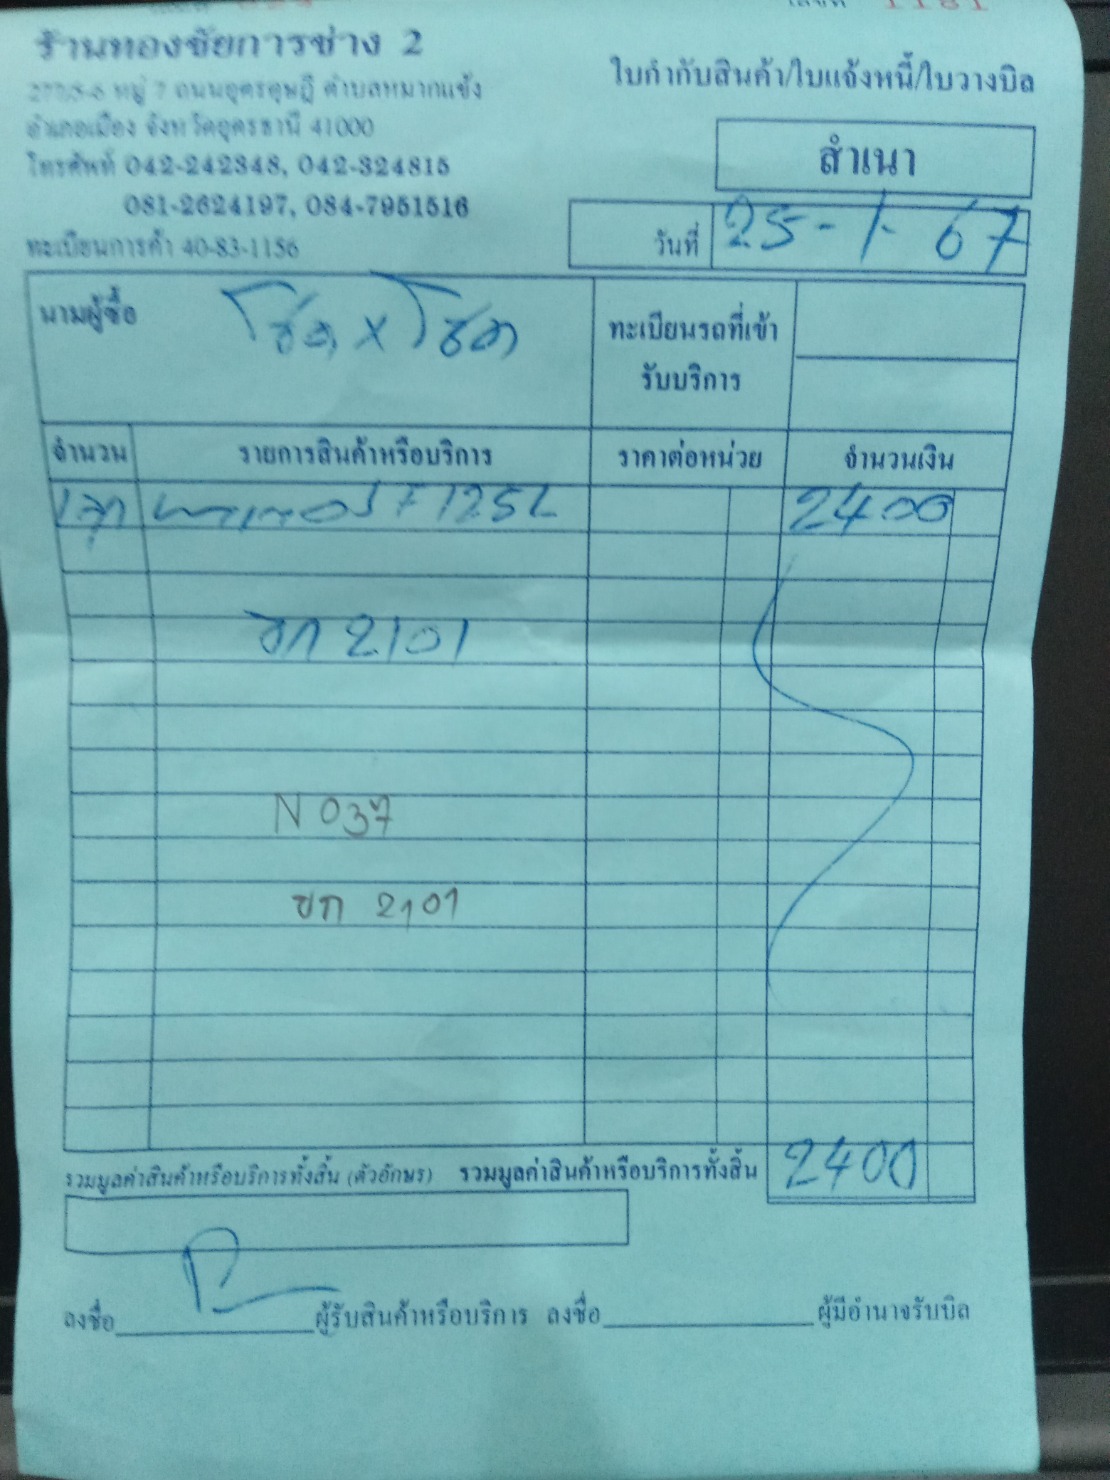 ร้านทองชัยการช่าง 2
277/5-6 หมู่ 7 ถนนอุดรดุษฎี ตำบลหมากแข้ง
อำเภอเมือง จังหวัดอุดรธานี 41000
โทรศัพท์ 042-242348, 042-324815
081-2624197, 084-7951516
ทะเบียนการค้า 40-83-1156
เลขที่ 1181
ใบกำกับสินค้า/ใบแจ้งหนี้/ใบวางบิล
สำเนา
วันที่ 25-1-67
นามผู้ซื้อ โชค x โชค
ทะเบียนรถที่เข้า
รับบริการ
จำนวน รายการสินค้าหรือบริการ ราคาต่อหน่วย จำนวนเงิน
1 ลูก F125L 2400
ขก 2101
N 037
ขก 2101
รวมมูลค่าสินค้าหรือบริการทั้งสิ้น (ตัวอักษร) รวมมูลค่าสินค้าหรือบริการทั้งสิ้น 2400
ลงชื่อ ผู้รับสินค้าหรือบริการ ลงชื่อ ผู้มีอำนาจรับบิล